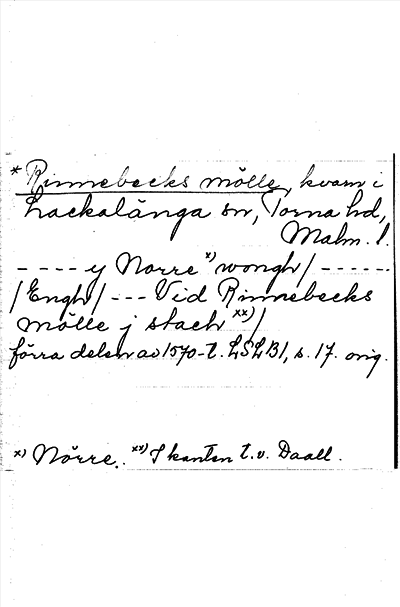 * Rinnebecks mölle, kvarn i
Lackalänga sn, Torna hd,
Malm. l.
- - - - y Norre x) wongh/ - - - - - -
/Engh/ - - - Vid Rinnebecks
mölle j stach xx)/
förra delen av 1570-t. LSLB1, s. 17. orig.
x) Nörre. xx) I kanten t.v. Daall.